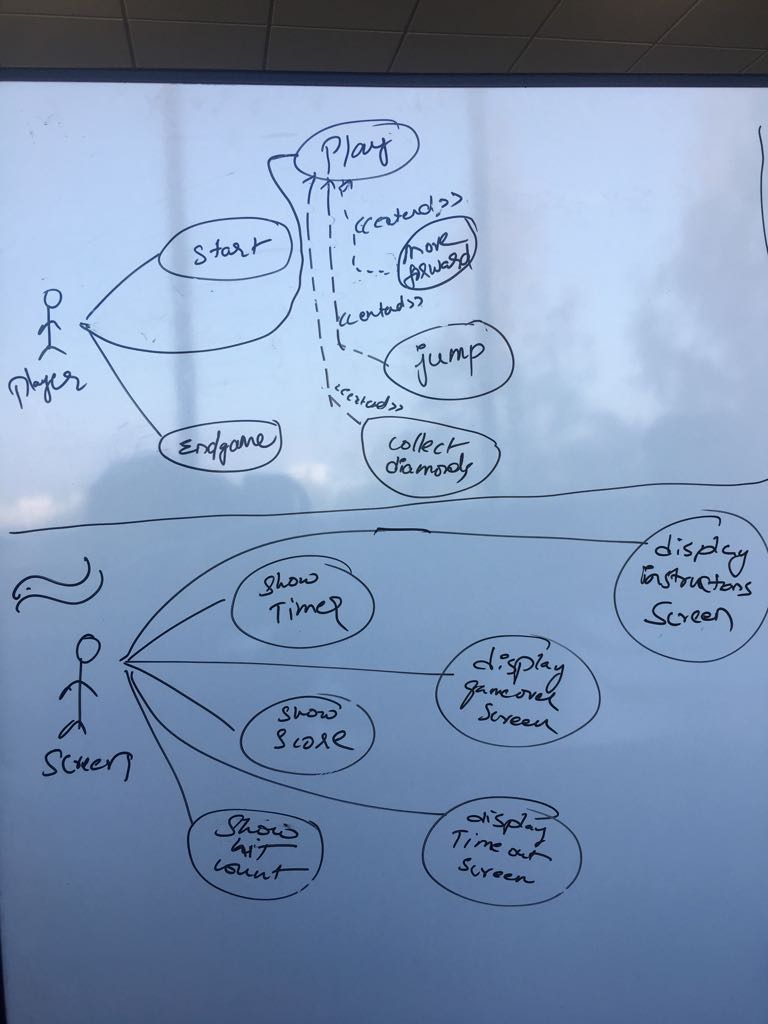 Play
<<extend>>
move
forward
Start
<<extend>>
jump
Player
<<extend>>
Endgame
collect
diamonds
display
instructions
Screen
show
Timer
display
gameover
Screen
show
Score
Screen
Show
hit
count
display
Time out
screen